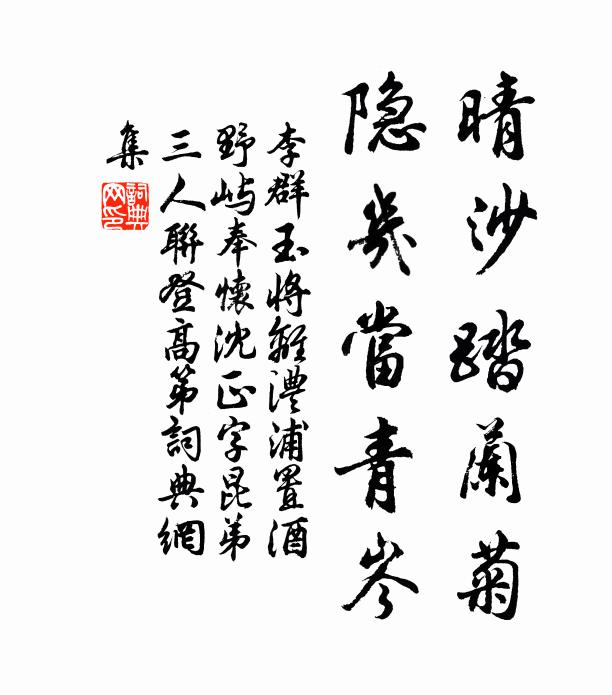 晴沙踏蘭菊
隐几當青岑
李群玉將離澧浦置酒
野屿奉懷沈正字昆弟
三人聯登高第詞典網
集
詞典
网印